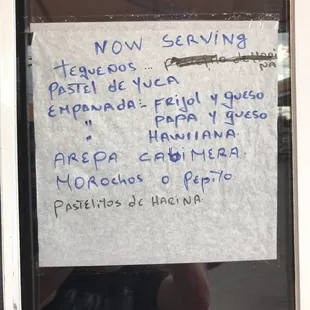 NOW SERVING
TEQUEÑOS... Pastelito de HARI
NA
PASTEL de YUCA
EMPANADA: FRIJOL y QUESO
" PAPA y QUESO
" HAWIIANA.
AREPA CABIMERA.
MOROCHOS O PEPITO
PASTELITOS de HARINA.